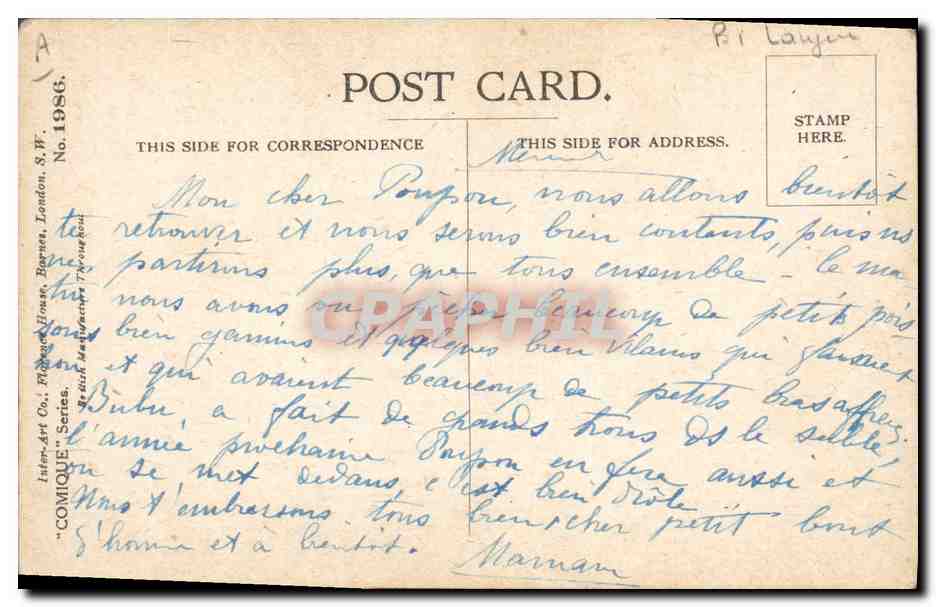 A
POST CARD.
STAMP
HERE.
THIS SIDE FOR CORRESPONDENCE
THIS SIDE FOR ADDRESS.
Mon cher Poupon, nous allons bientôt
te retrouver et nous serons bien contents, puis ns
ne partirons plus, que tous ensemble – le ma
tin nous avons vu beaucoup de petits pois
sons bien gamins et quelques bien vilains qui
et qui avaient beaucoup de petits bras affreux.
Bubu a fait de grands trous ds le sable,
l'année prochaine Poupon en fera aussi et
on se met dedans, c'est bien drôle
Nous t'embrassons tous bien, cher petit bout
d'homme et à bientôt.
Maman
Inter-Art Co., Florence House, Barnes, London. S.W.
"COMIQUE" Series.
No. 1986.
British Manufacture Throughout
CPAPHIL